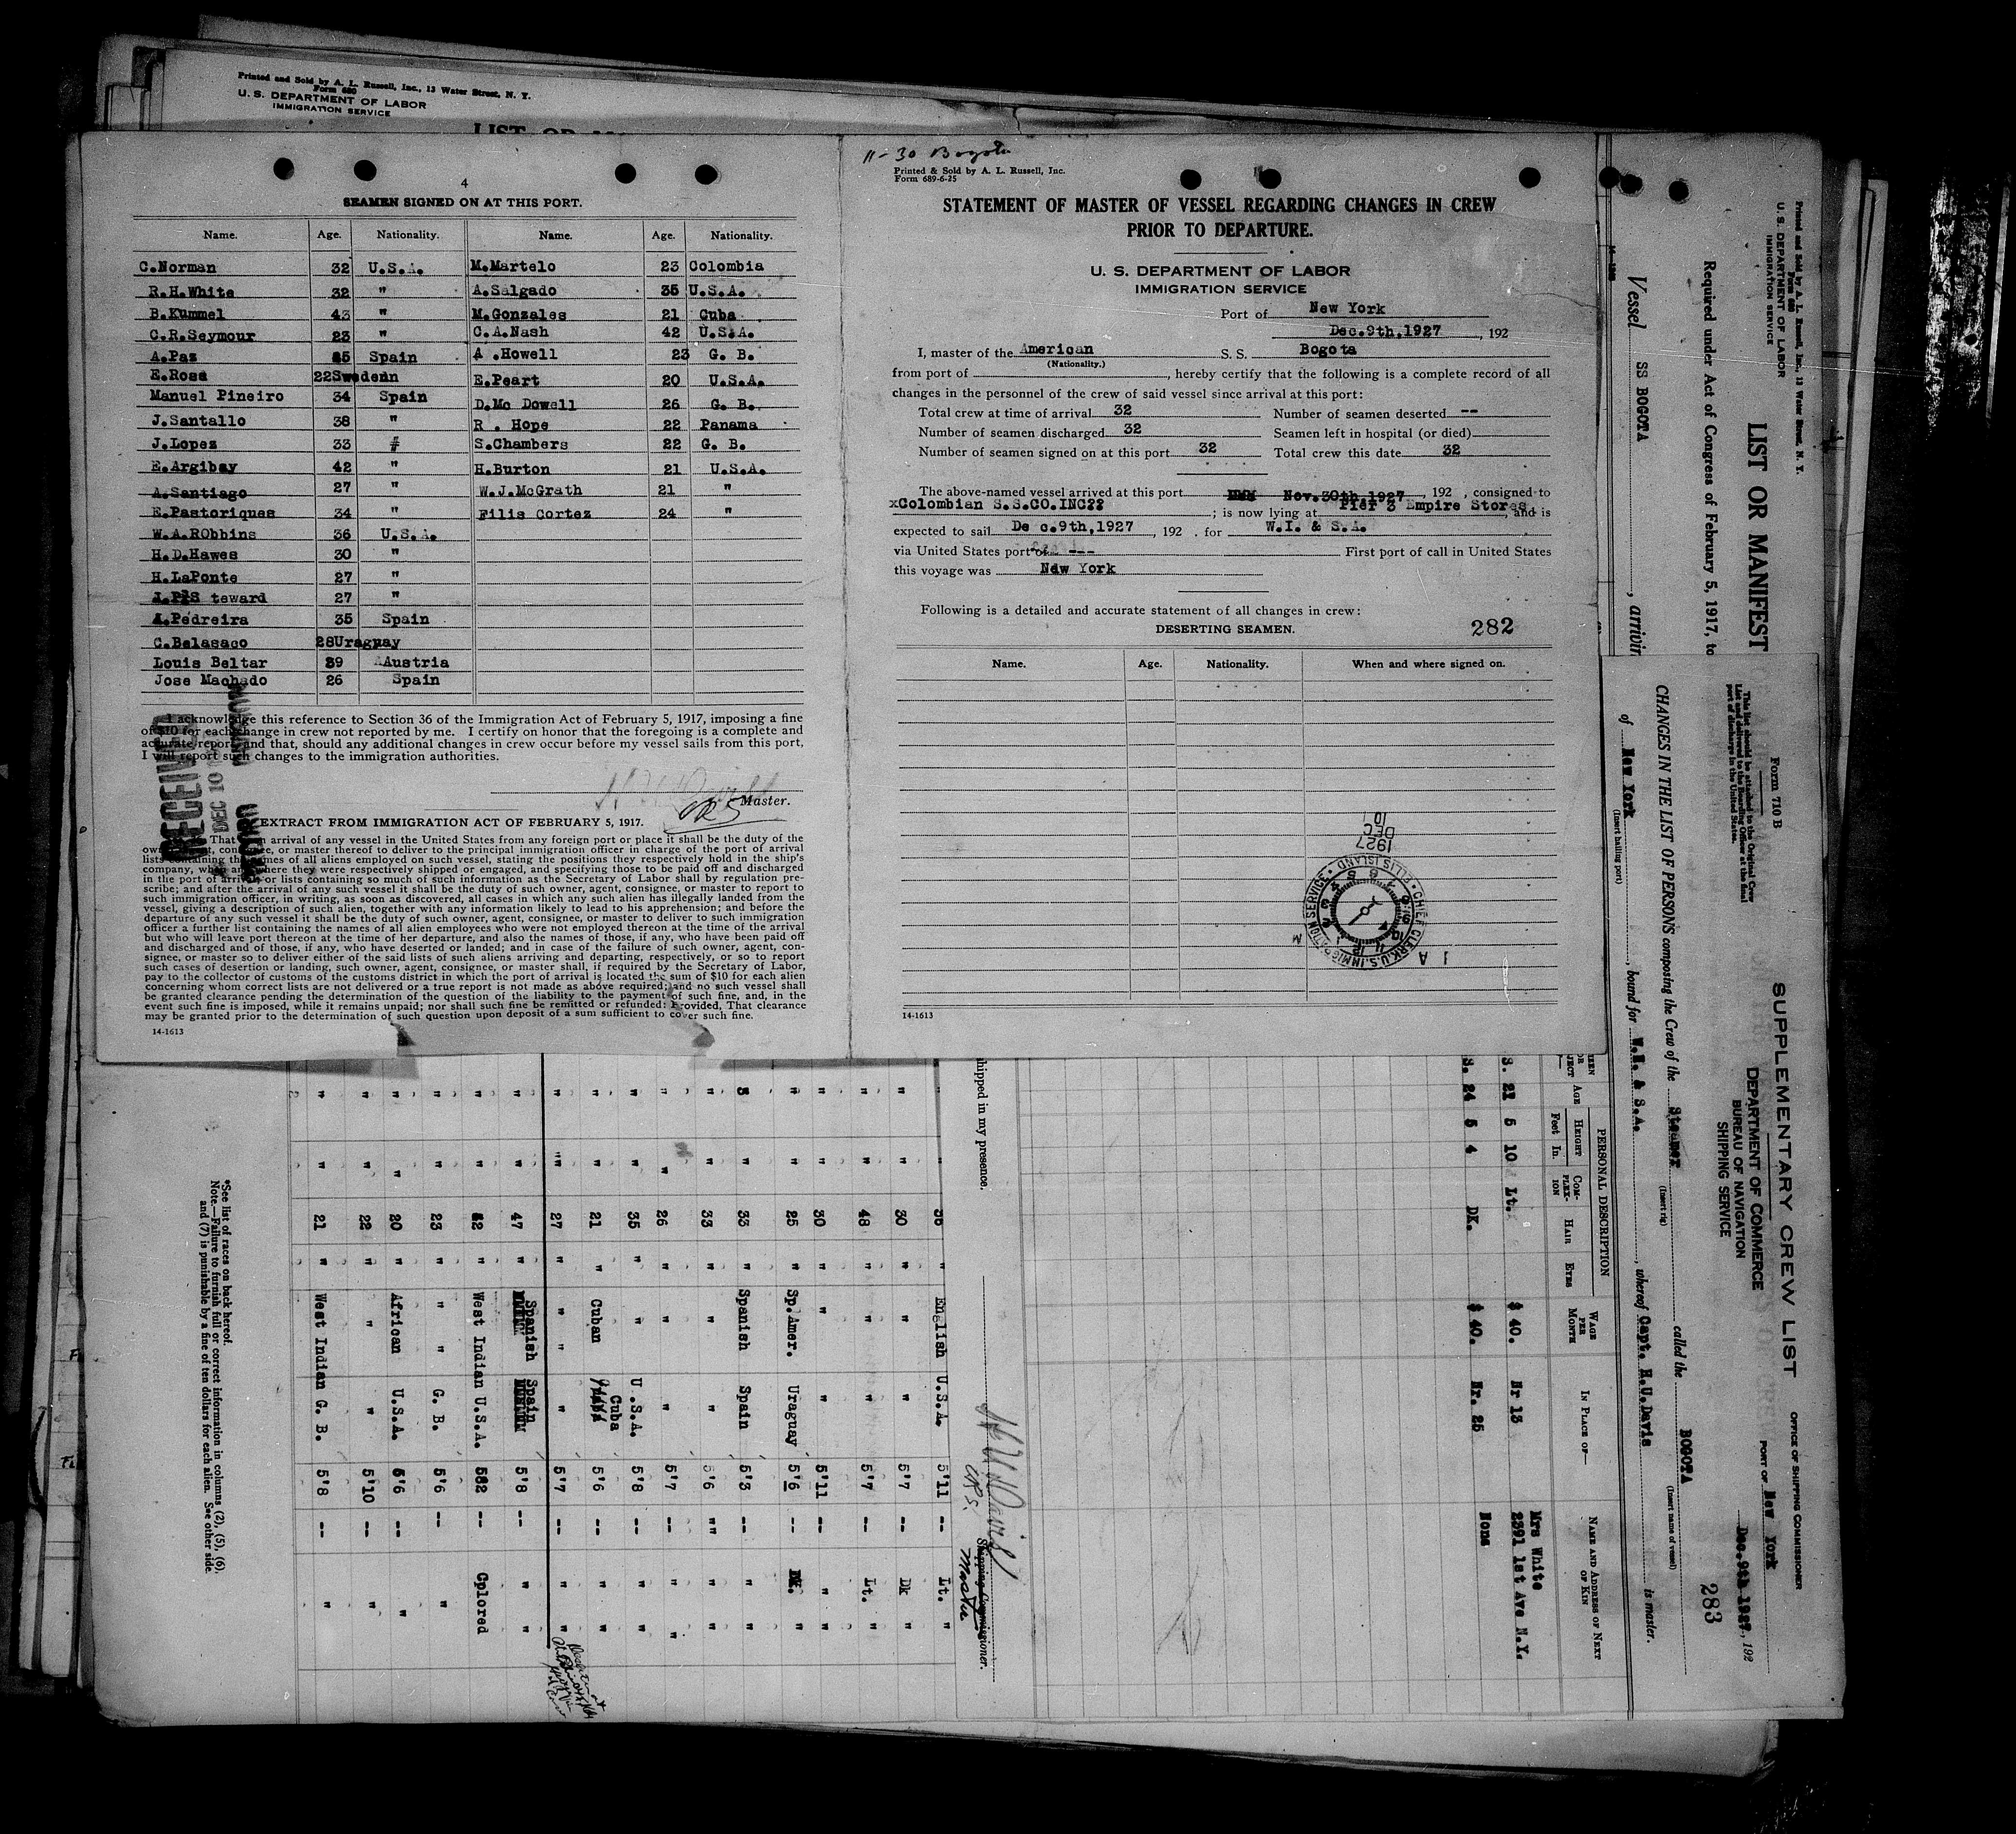 Printed and Sold by A. L. Russell, Inc., 13 Water Street, N. Y.
Form 680
U. S. DEPARTMENT OF LABOR
IMMIGRATION SERVICE
4
SEAMEN SIGNED ON AT THIS PORT.
Name. Age. Nationality. Name. Age. Nationality.
C.Norman 32 U.S.A. M.Martelo 23 Colombia
R.H.White 32 " A.Salgado 35 U.S.A.
B.Kummel 43 " M.Gonzales 21 Cuba
C.R.Seymour 23 " C.A.Nash 42 U.S.A.
A.Paz 25 Spain A .Howell 23 G. B.
E.Rosa 22 Sweden E.Peart 20 U.S.A.
Manuel Pineiro 34 Spain D.Mc Dowell 26 G. B.
J.Santallo 38 " R . Hope 22 Panama
J.Lopez 33 # S.Chambers 22 G. B.
E.Argibay 42 " H.Burton 21 U.S.A.
A.Santiago 27 " W.J.McGrath 21 "
E.Pastoriques 34 " Filis Cortez 24 "
W.A.RObbins 36 U.S.A.
H.D.Hawes 30 "
H.LaPonte 27 "
S teward 27 "
A.Pedreira 35 Spain
C.Belasaco 28Uraguay
Louis Beltar 39 Austria
Jose Machado 26 Spain
I acknowledge this reference to Section 36 of the Immigration Act of February 5, 1917, imposing a fine
of $10 for each change in crew not reported by me. I certify on honor that the foregoing is a complete and
accurate report, and that, should any additional changes in crew occur before my vessel sails from this port,
I will report such changes to the immigration authorities.
Master.
RECEIVED
DEC 10
EXTRACT FROM IMMIGRATION ACT OF FEBRUARY 5, 1917.
That arrival of any vessel in the United States from any foreign port or place it shall be the duty of the
owner, agent, consignee, or master thereof to deliver to the principal immigration officer in charge of the port of arrival
lists containing the names of all aliens employed on such vessel, stating the positions they respectively hold in the ship's
company, when and where they were respectively shipped or engaged, and specifying those to be paid off and discharged
in the port of arrival or lists containing so much of such information as the Secretary of Labor shall by regulation pre-
scribe; and after the arrival of any such vessel it shall be the duty of such owner, agent, consignee, or master to report to
such immigration officer, in writing, as soon as discovered, all cases in which any such alien has illegally landed from the
vessel, giving a description of such alien, together with any information likely to lead to his apprehension; and before the
departure of any such vessel it shall be the duty of such owner, agent, consignee, or master to deliver to such immigration
officer a further list containing the names of all alien employees who were not employed thereon at the time of the arrival
but who will leave port thereon at the time of her departure, and also the names of those, if any, who have been paid off
and discharged and of those, if any, who have deserted or landed; and in case of the failure of such owner, agent, con-
signee, or master so to deliver either of the said lists of such aliens arriving and departing, respectively, or so to report
such cases of desertion or landing, such owner, agent, consignee, or master shall, if required by the Secretary of Labor,
pay to the collector of customs of the customs district in which the port of arrival is located the sum of $10 for each alien
concerning whom correct lists are not delivered or a true report is not made as above required; and no such vessel shall
be granted clearance pending the determination of the question of the liability to the payment of such fine, and, in the
event such fine is imposed, while it remains unpaid; nor shall such fine be remitted or refunded: Provided, That clearance
may be granted prior to the determination of such question upon deposit of a sum sufficient to cover such fine.
14-1613
11-30 Bogota
Printed & Sold by A. L. Russell, Inc.
Form 689-6-25
STATEMENT OF MASTER OF VESSEL REGARDING CHANGES IN CREW
PRIOR TO DEPARTURE.
U. S. DEPARTMENT OF LABOR
IMMIGRATION SERVICE
Port of New York
Dec.9th,1927, 192
I, master of the American S. S. Bogota
(Nationality.)
from port of , hereby certify that the following is a complete record of all
changes in the personnel of the crew of said vessel since arrival at this port:
Total crew at time of arrival 32 Number of seamen deserted --
Number of seamen discharged 32 Seamen left in hospital (or died)
Number of seamen signed on at this port 32 Total crew this date 32
The above-named vessel arrived at this port Nov.30th,1927, 192 , consigned to
xColombian S.S.CO.INC?? ; is now lying at Pier 3 Empire Stores, and is
expected to sail Dec.9th,1927, 192 . for W.I. & S.A.
via United States port of --- First port of call in United States
this voyage was New York
Following is a detailed and accurate statement of all changes in crew:
DESERTING SEAMEN. 282
Name. Age. Nationality. When and where signed on.
1927
DEC
10
CHIEF CLERK, U.S. IMMIGRATION SERVICE · ELLIS ISLAND ·
14-1613
Printed and Sold by A. L. Russell, Inc., 13 Water Street, N. Y.
Form 680
U. S. DEPARTMENT OF LABOR
IMMIGRATION SERVICE
LIST OR MANIFEST
Required under Act of Congress of February 5, 1917, to
Vessel SS BOGOTA , arrivin
Form 710 B
This list should be attached to the Original Crew
List and delivered to the Boarding Officer at the final
port of discharge in the United States.
SUPPLEMENTARY CREW LIST
DEPARTMENT OF COMMERCE
BUREAU OF NAVIGATION
SHIPPING SERVICE
OFFICE OF SHIPPING COMMISSIONER
PORT OF New York
Dec.9th 1927, 192
283
CHANGES IN THE LIST OF PERSONS composing the Crew of the Steamer called the BOGOTA
(Insert rig) (Insert name of vessel)
of New York, bound for W.I. & S.A. , whereof Capt. H.U.Davis is master.
(Insert hailing port)
PERSONAL DESCRIPTION
AGE HEIGHT COM-PLEX-ION HAIR EYES WAGE PER MONTH IN PLACE OF— NAME AND ADDRESS OF NEXT OF KIN
Feet In.
S. 21 5 10 Lt. $ 40. Nr 13 Mrs White
2391 1st Ave N.Y.
S. 24 5 4 DK. $ 40. Nr. 25 None
shipped in my presence.
H U Davis
Shipping Commissioner.
Master
" 36 " English U.S.A. 5'11 -- Lt. "
" " 30 " " " 5'7 -- Dk "
" " 48 " " " 5'7 -- Lt. "
30 " " " 5'11 " "
" " 25 " Sp.Amer. Uraguay 5'6 -- DK. "
" 33 " Spanish Spain 5'3 -- " "
" " 33 " " " 5'6 " " "
" " 26 " " 5'7 -- " "
" " 35 " " U.S.A. 5'8 -- " "
" " 21 " Cuban Cuba 5'6 -- " "
" " 27 " " " 5'7 -- " "
" " 47 " Spanish Spain 5'8 -- " "
" " 42 " West Indian U.S.A. -- Cplored
" " 23 " " G. B. 5'6 -- "
" " 20 " African U.S.A. 5'6 -- "
" " 22 " " " 5'10 -- "
" " 21 " West Indian G. B. 5'8 -- "
*See list of races on back hereof.
Note.—Failure to furnish full or correct information in columns (2), (5), (6),
and (7) is punishable by a fine of ten dollars for each alien. See other side.